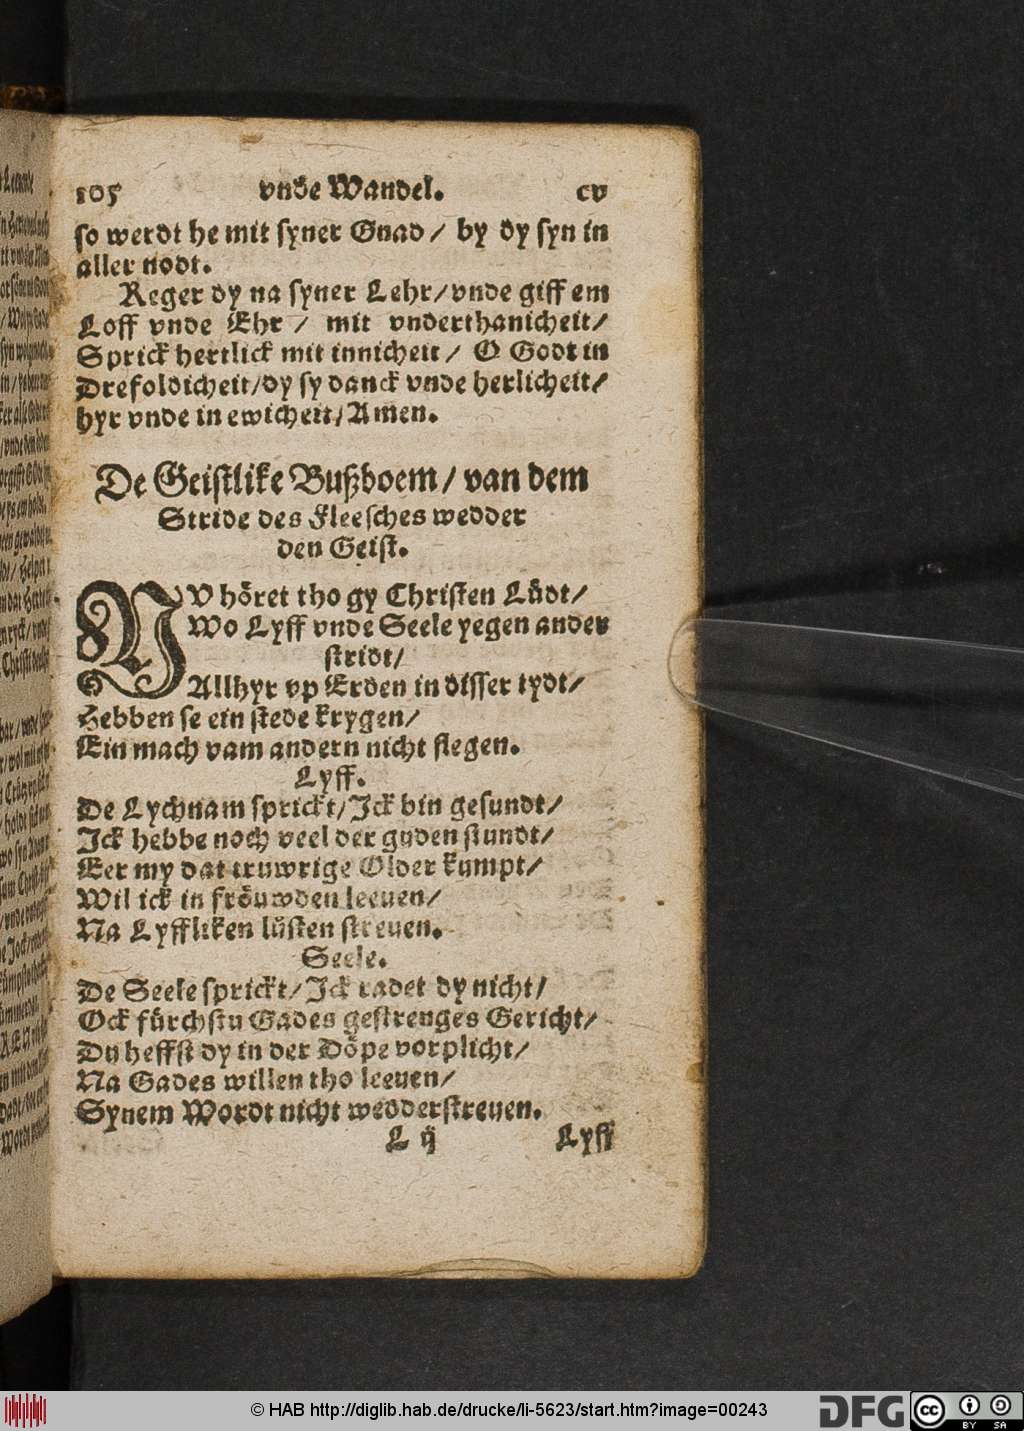 105 vnde Wandel. cv
so werdt he mit syner Gnad / by dy syn in
aller nodt.
Reger dy na syner Lehr/vnde giff em
Loff vnde Ehr / mit vnderthanicheit/
Sprick hertlick mit innicheit / O Godt in
Drefoldicheit/dy sy danck vnde herlicheit/
hyr vnde in ewicheit/Amen.
De Geistlike Bußboem/ van dem
Stride des Fleesches wedder
den Geist.
NV höret tho gy Christen Lüdt/
Wo Lyff vnde Seele yegen ander
stridt/
Allhyr vp Erden in disser tydt/
Hebben se ein stede krygen/
Ein mach vam andern nicht flegen.
Lyff.
De Lychnam sprickt/Jck bin gesundt/
Jck hebbe noch veel der guden stundt/
Eer my dat truwrige Older kumpt/
Wil ick in fröuwden leeuen/
Na Lyffliken lüsten streuen.
Seele.
De Seele sprickt/Jck radet dy nicht/
Ock fürchstu Gades gestrenges Gericht/
Du heffst dy in der Döpe vorplicht/
Na Gades willen tho leeuen/
Synem Wordt nicht wedderstreuen.
L ij Lyff
© HAB http://diglib.hab.de/drucke/li-5623/start.htm?image=00243
DFG
cc BY SA